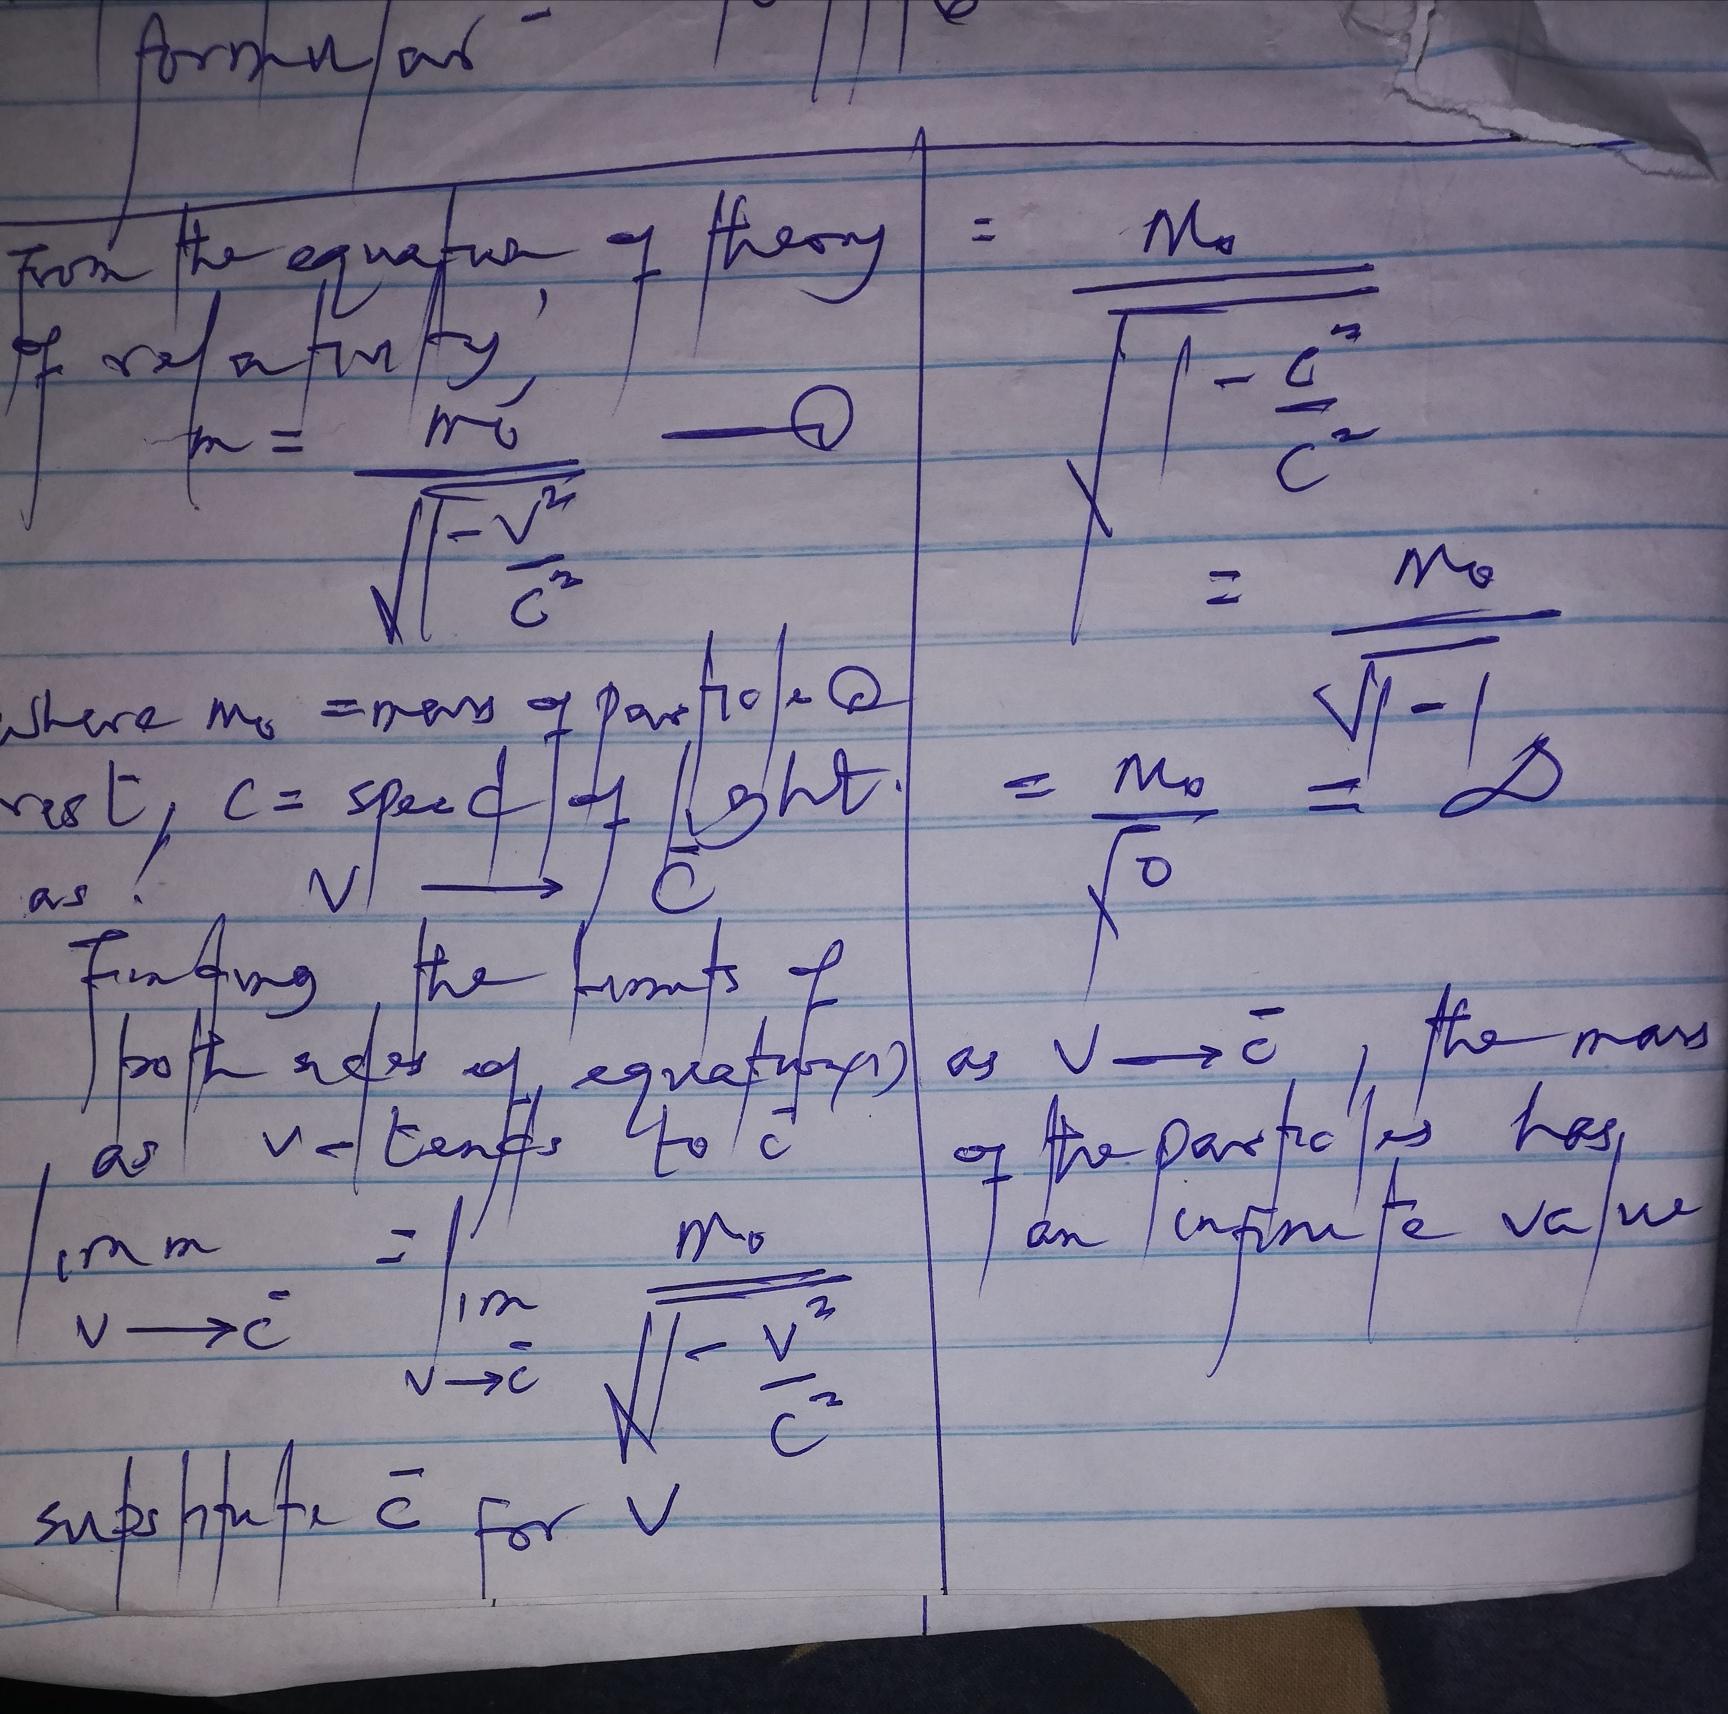 formular
From the equation of theory
of relativity,
m = m₀ / √(1 - v²/c²) — ①
where m₀ = mass of particle @
rest, c = speed of light.
as: v → c̄
Finding the limits of
both sides of equation(1)
as v - tends to c̄
lim m = lim m₀ / √(1 - v²/c²)
v → c̄ v → c̄
substitute c̄ for v
= m₀ / √(1 - c²/c²)
= m₀ / √(1 - 1)
= m₀ / √0 = ∞
as v → c̄, the mass
of the particles has
an infinite value